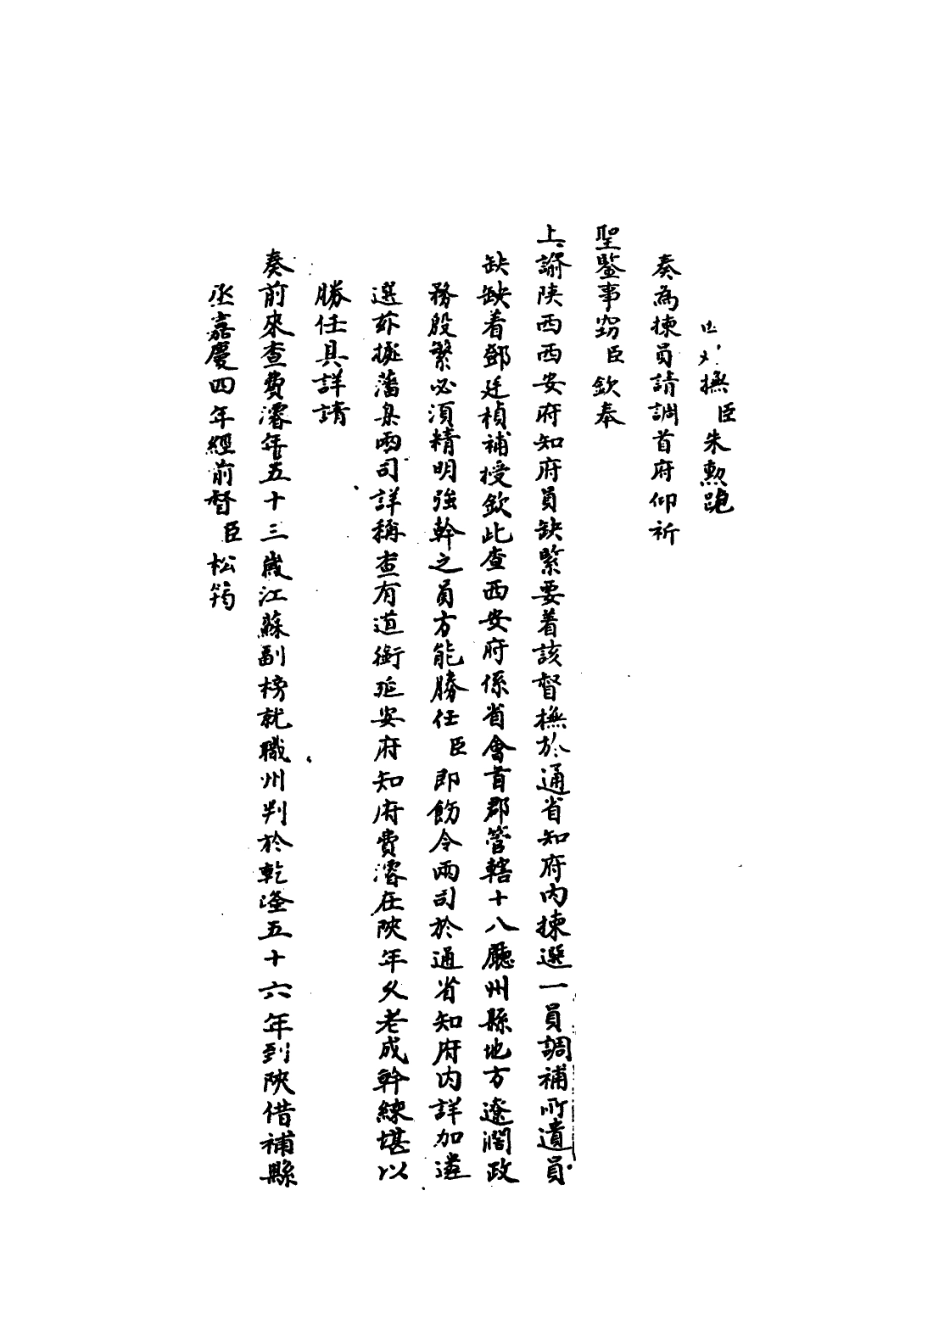 撫臣朱勲跪
奏為揀員請調首府仰祈
聖鑒事窃臣欽奉
上諭陕西西安府知府員缺緊要着該督撫於通省知府内揀選一員調補所遺員
缺缺着鄧廷楨補授欽此查西安府係省會首郡管轄十八廳州縣地方遼濶政
務殷繁必須精明強幹之員方能勝任臣即飭令兩司於通省知府内詳加遴
選茲㨿藩臬兩司詳稱查有道銜延安府知府費濬在陝年久老成幹練堪以
勝任具詳請
奏前來查費濬年五十三歲江蘇副榜就職州判於乾隆五十六年到陝借補縣
丞嘉慶四年經前督臣松筠